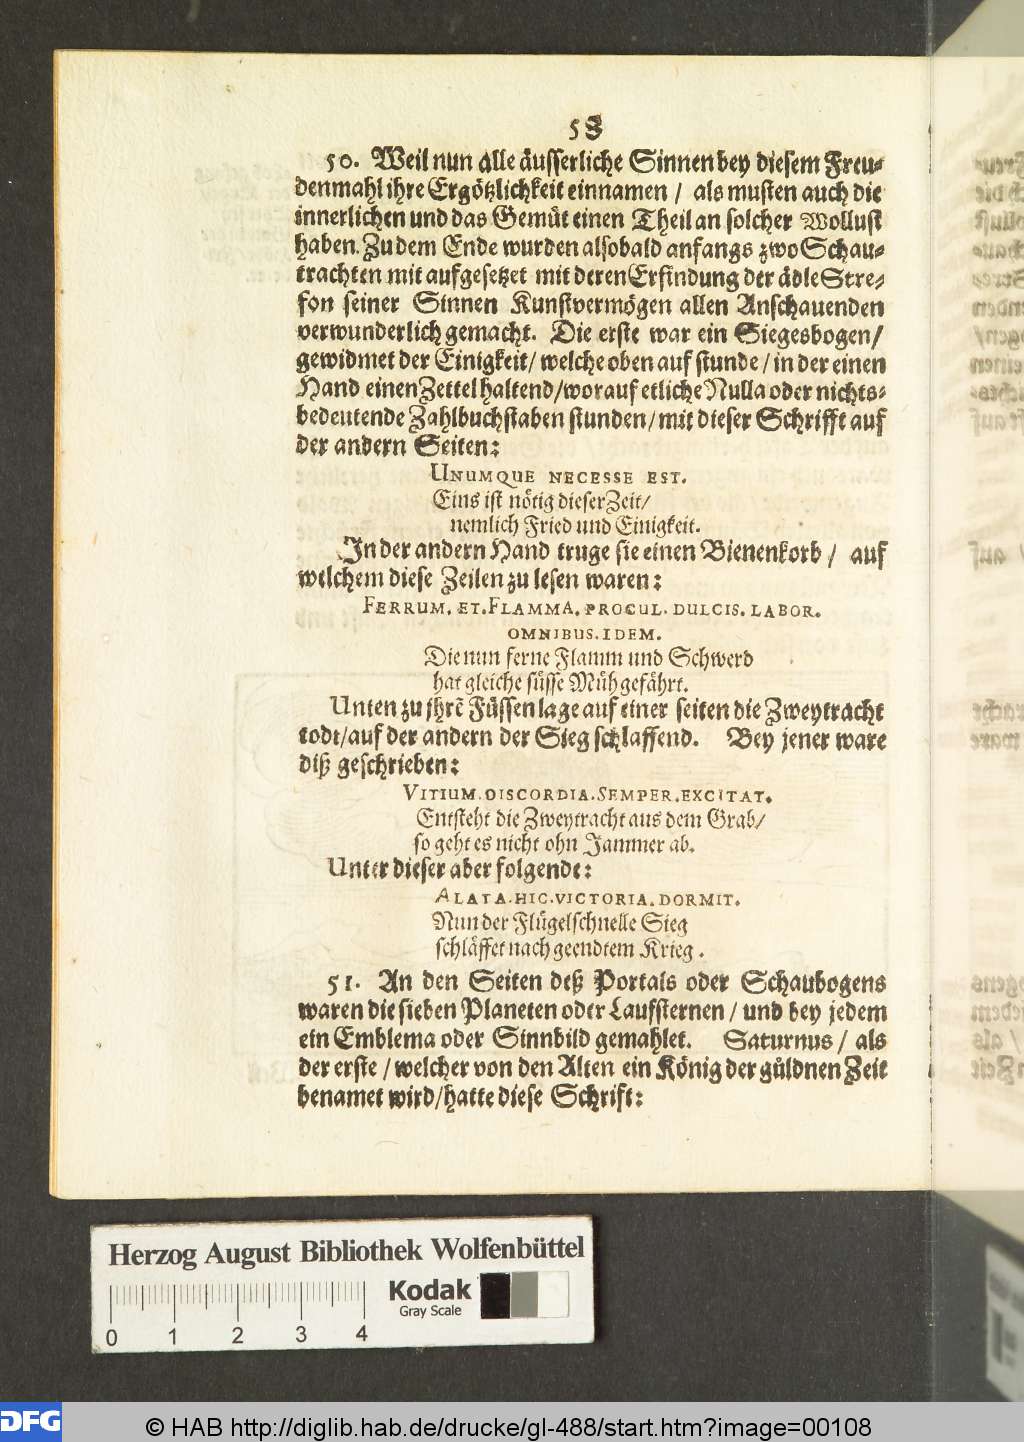 58
50. Weil nun alle äusserliche Sinnen bey diesem Freu-
denmahl ihre Ergötzlichkeit einnamen / als musten auch die
innerlichen und das Gemüt einen Theil an solcher Wollust
haben. Zu dem Ende wurden alsobald anfangs zwo Schau-
trachten mit aufgesetzet mit deren Erfindung der ädle Stre-
fon seiner Sinnen Kunstvermögen allen Anschauenden
verwunderlich gemacht. Die erste war ein Siegesbogen/
gewidmet der Einigkeit/ welche oben auf stunde / in der einen
Hand einen Zettel haltend/worauf etliche Nulla oder nichts-
bedeutende Zahlbuchstaben stunden/mit dieser Schrifft auf
der andern Seiten:
UNUMQUE NECESSE EST.
Eins ist nötig dieser Zeit/
nemlich Fried und Einigkeit.
In der andern Hand truge sie einen Bienenkorb / auf
welchem diese Zeilen zu lesen waren:
FERRUM. ET. FLAMMA. PROCUL. DULCIS. LABOR.
OMNIBUS. IDEM.
Die nun ferne Flamm und Schwerd
hat gleiche süsse Müh gefährt.
Unten zu ihrẽ Füssen lage auf einer seiten die Zweytracht
todt/auf der andern der Sieg schlaffend. Bey jener ware
diß geschrieben:
VITIUM. DISCORDIA. SEMPER. EXCITAT.
Entsteht die Zweytracht aus dem Grab/
so geht es nicht ohn Jammer ab.
Unter dieser aber folgende:
ALATA. HIC. VICTORIA. DORMIT.
Nun der Flügelschnelle Sieg
schläffet nach geendtem Krieg.
51. An den Seiten deß Portals oder Schaubogens
waren die sieben Planeten oder Laufsternen / und bey jedem
ein Emblema oder Sinnbild gemahlet. Saturnus / als
der erste / welcher von den Alten ein König der güldnen Zeit
benamet wird/hatte diese Schrift:
Herzog August Bibliothek Wolfenbüttel
Kodak
Gray Scale
0 1 2 3 4
DFG
© HAB http://diglib.hab.de/drucke/gl-488/start.htm?image=00108